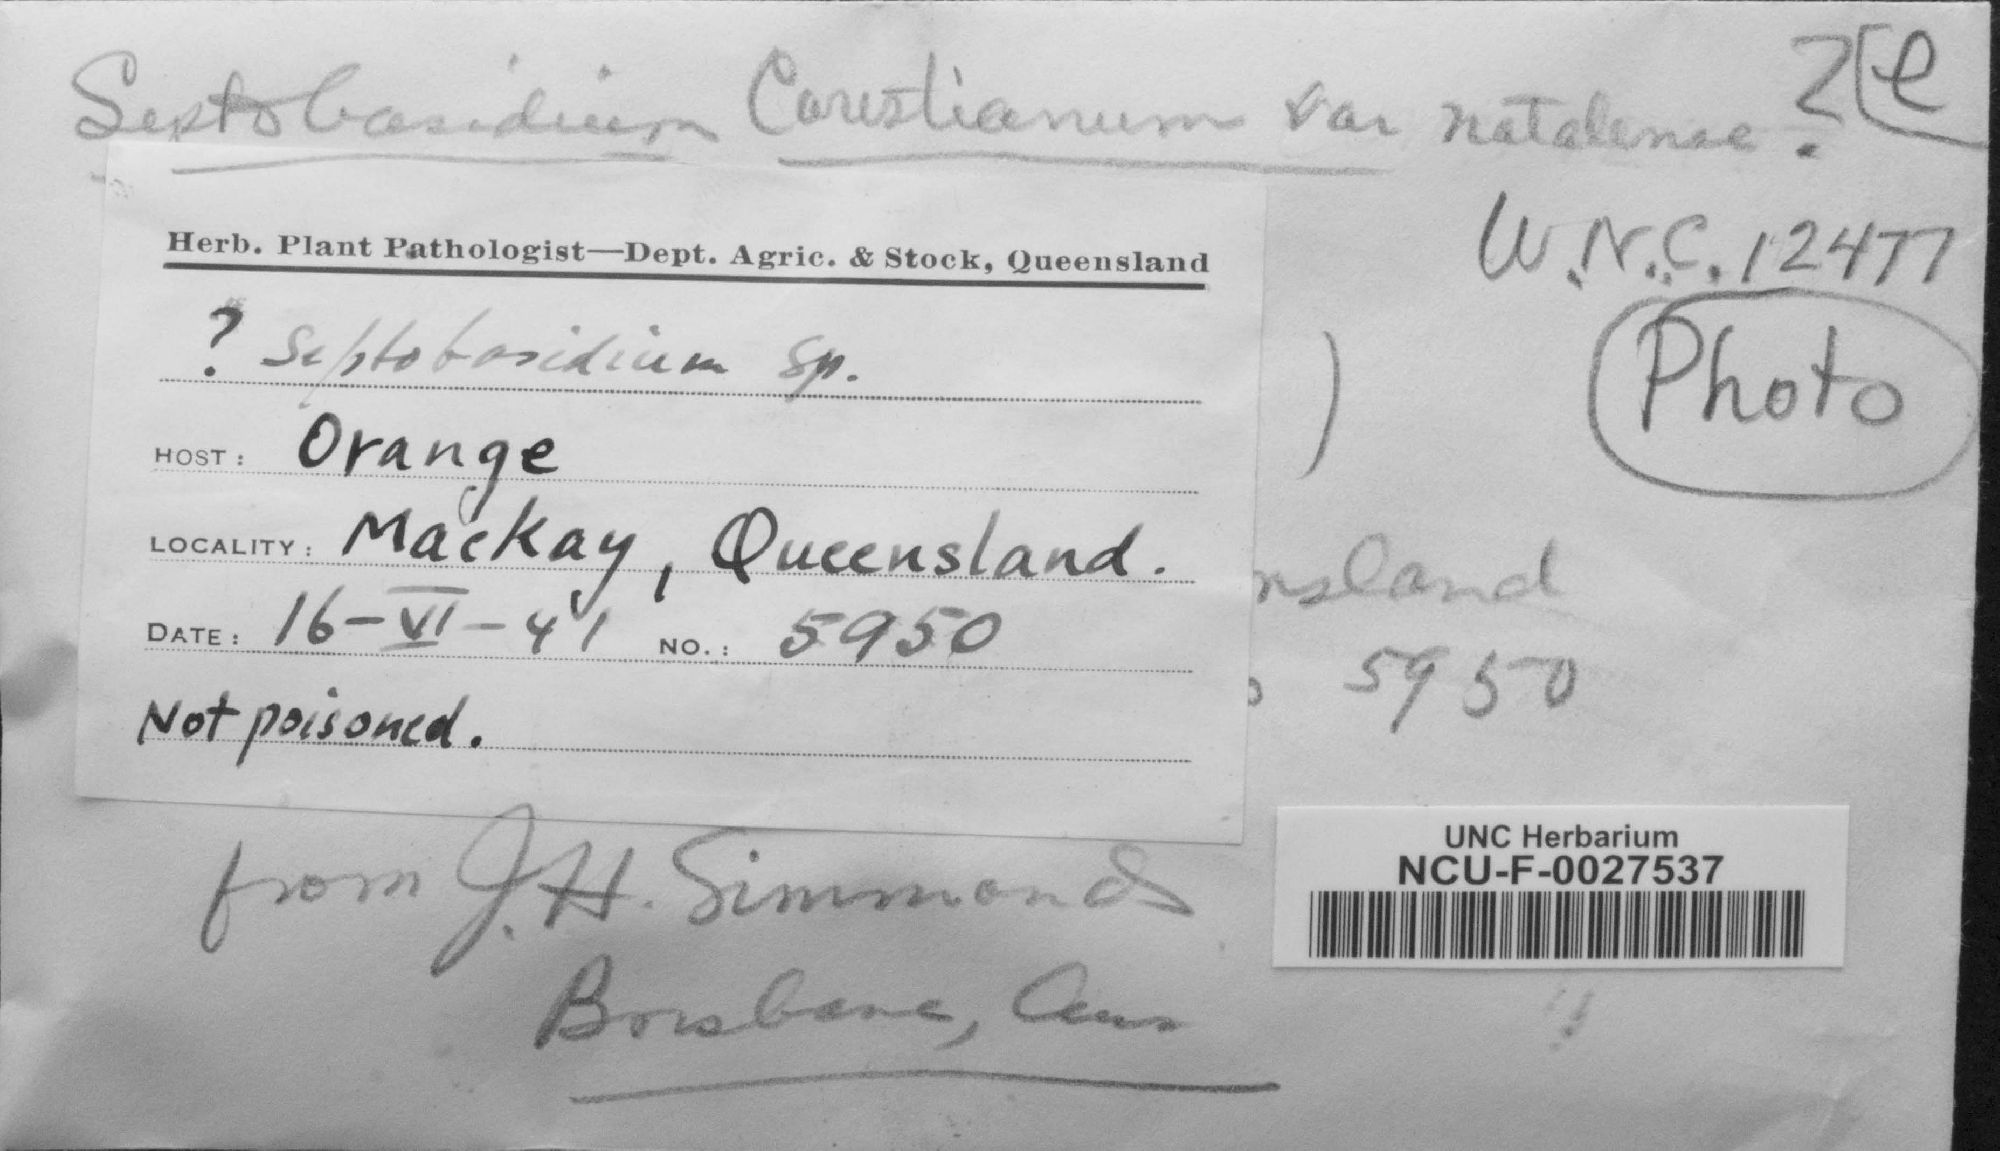 Septobasidium Carestianum var natalense ? e
W.N.C. 12477
Photo
Herb. Plant Pathologist—Dept. Agric. & Stock, Queensland
? Septobasidium sp.
)
HOST: Orange
LOCALITY: Mackay, Queensland.
nsland
DATE: 16-VI-41 NO.: 5950
5950
Not poisoned.
from J.H. Simmonds
Brisbane, Aus
UNC Herbarium
NCU-F-0027537